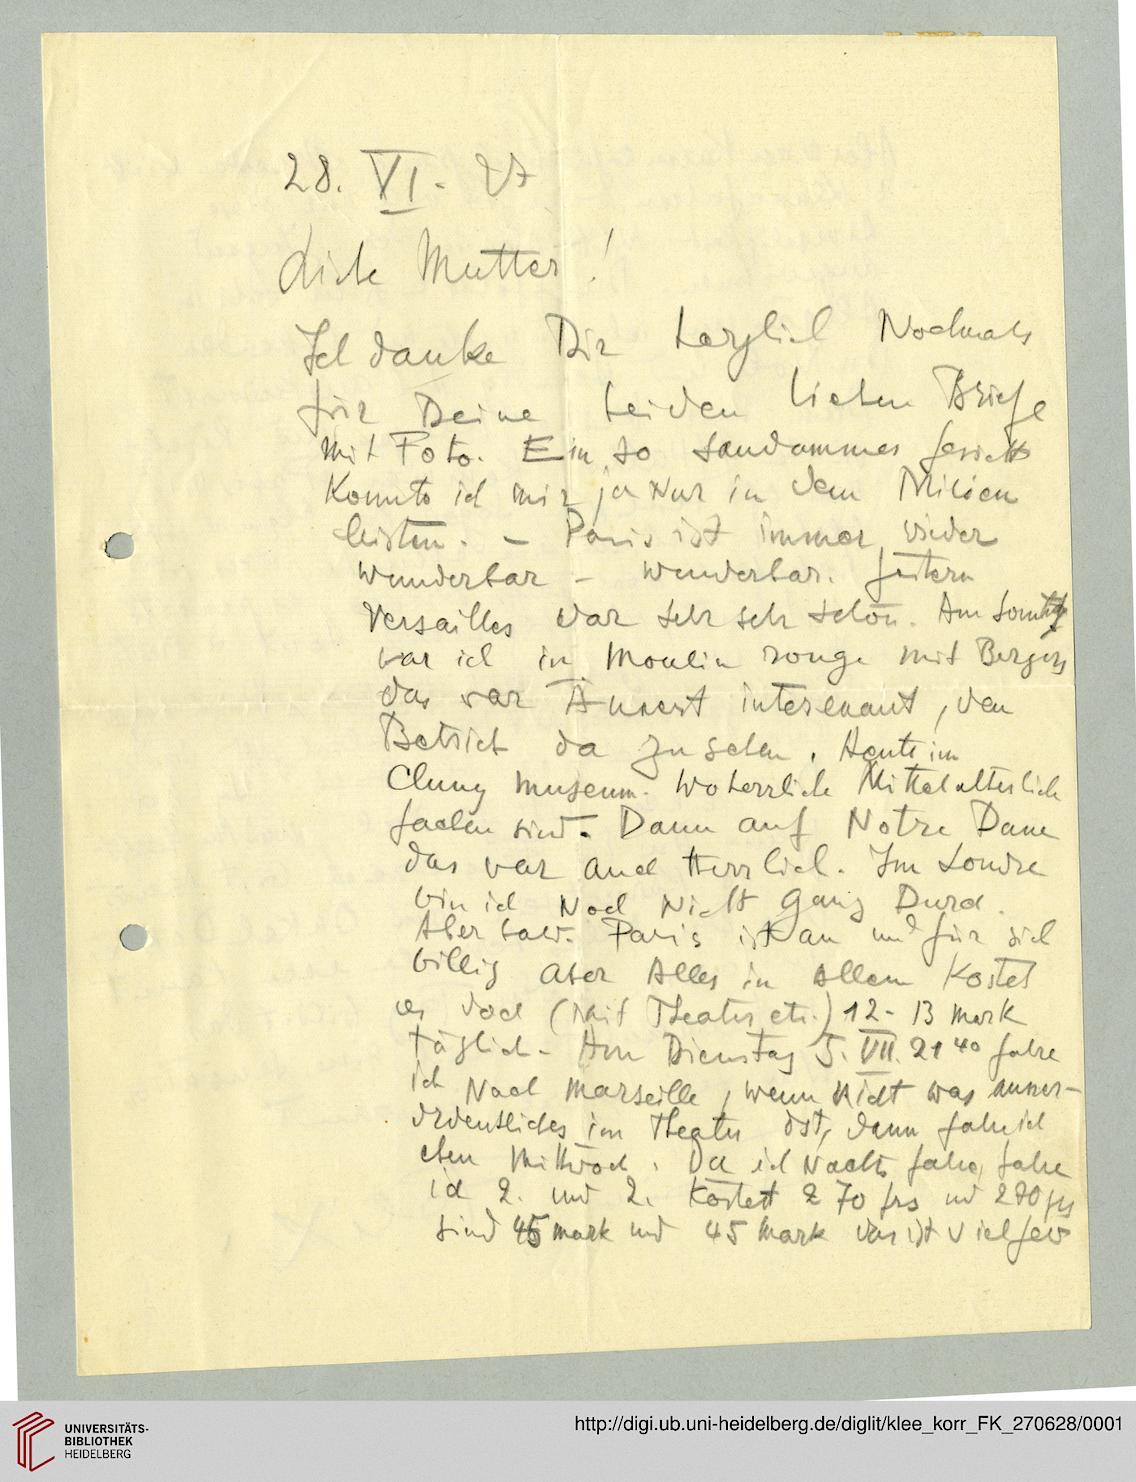 28. VI. 27
Liebe Mutter!
Ich danke Dir herzlich Nochmals
für Deine beiden lieben Briefe
mit Foto. Ein so Gesicht
Konnte ich mir ja Nur in dem Milieu
leisten. – Paris ist immer wieder
wunderbar – wunderbar. Gestern
Versailles war sehr sehr schön. Am Sonntag
war ich in Moulin rouge mit Bergers
das war Äusserst interessant, den
Betrieb da zu sehen. Heute im
Cluny Museum. Wo herrliche Mittelalterlich
Sachen sind. Dann auf Notre Dame
das war auch Herrlich. Im Louvre
bin ich Noch Nicht Ganz Durch.
Aber bald. Paris ist an und für sich
billig aber Alles in Allem Kostet
es doch (mit Theater etc.) 12 - 13 Mark
täglich. Am Dienstag 5. VII. 21 40 fahre
ich Nach Marseille, wenn Nicht was ausser-
ordentliches im Theater ist, dann fahre ich
eben Mittwoch. Da ich Nachts fahre, fahre
ich 2. und 2. Kostet 270 frs und 270 frs
sind 45 Mark und 45 Mark das ist viel Geld
UNIVERSITÄTS-
BIBLIOTHEK
HEIDELBERG
http://digi.ub.uni-heidelberg.de/diglit/klee_korr_FK_270628/0001